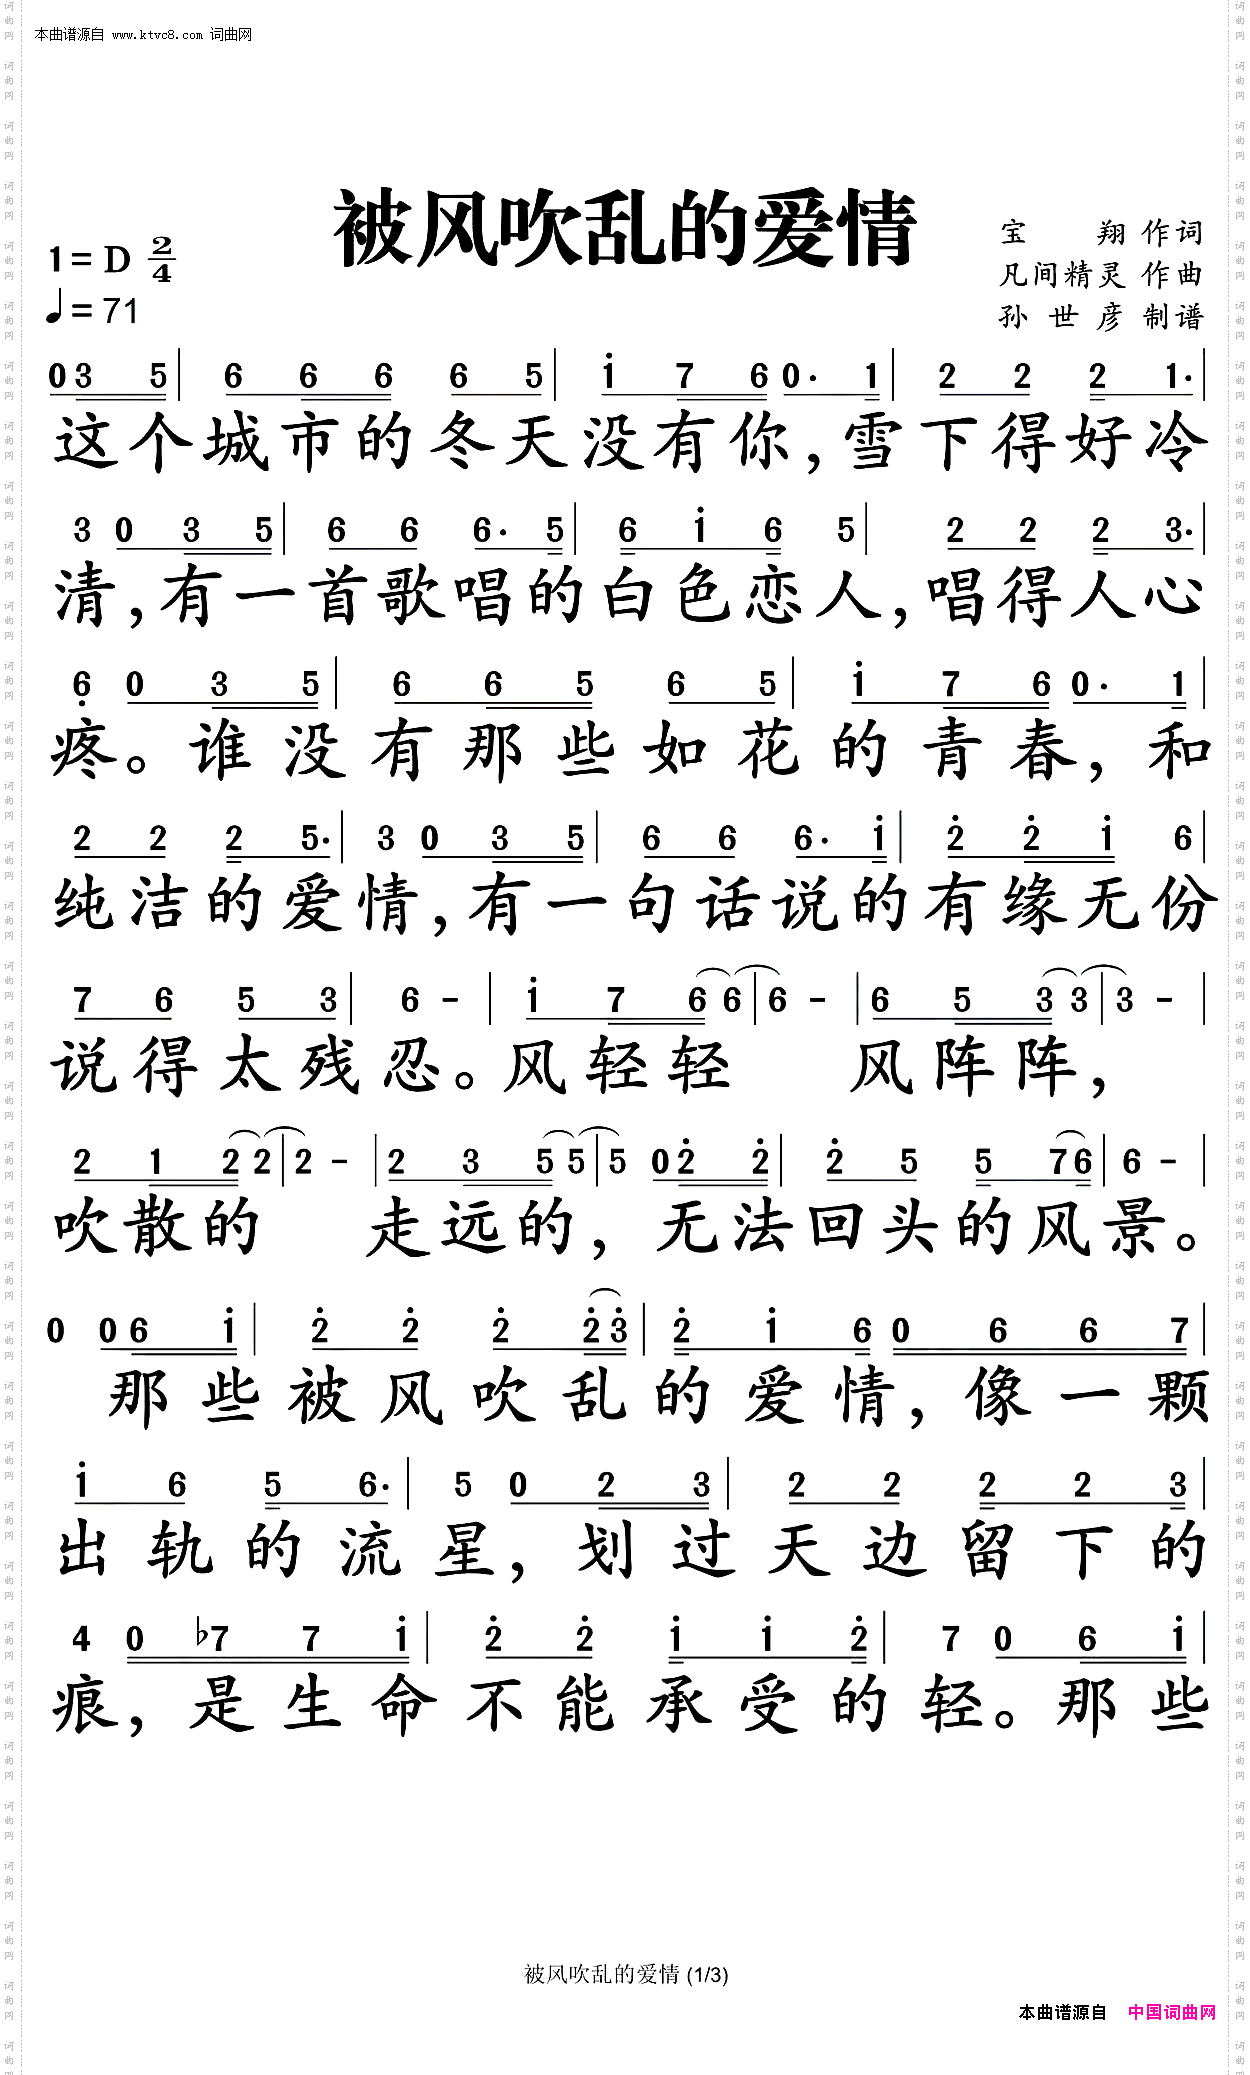 本曲谱源自 www.ktvc8.com 词曲网
被风吹乱的爱情
宝 翔 作词
1= D 2/4
凡间精灵 作曲
♩= 71
孙世彦 制谱
0 3 5 | 6 6 6 6 5 | i 7 6 0· 1 | 2 2 2 1· |
这个城市的冬天没有你,雪下得好冷
3 0 3 5 | 6 6 6· 5 | 6 i 6 5 | 2 2 2 3· |
清,有一首歌唱的白色恋人,唱得人心
6̣ 0 3 5 | 6 6 5 6 5 | i 7 6 0· 1 |
疼。谁没有那些如花的青春,和
2 2 2 5· | 3 0 3 5 | 6 6 6· i | 2̇ 2̇ i 6 |
纯洁的爱情,有一句话说的有缘无份
7 6 5 3 | 6 - | i 7 6 6 | 6 - | 6 5 3 3 | 3 - |
说得太残忍。风轻轻 风阵阵,
2 1 2 2 | 2 - | 2 3 5 5 | 5 0 2̇ 2̇ | 2̇ 5 5 7 6 | 6 - |
吹散的 走远的,无法回头的风景。
0 0 6 i | 2̇ 2̇ 2̇ 2̇ 3̇ | 2̇ i 6 0 6 6 7 |
那些被风吹乱的爱情,像一颗
i 6 5 6· | 5 0 2 3 | 2 2 2 2 3 |
出轨的流星,划过天边留下的
4 0 ♭7 7 i | 2̇ 2̇ i i 2̇ | 7 0 6 i |
痕,是生命不能承受的轻。那些
被风吹乱的爱情 (1/3)
本曲谱源自 中国词曲网